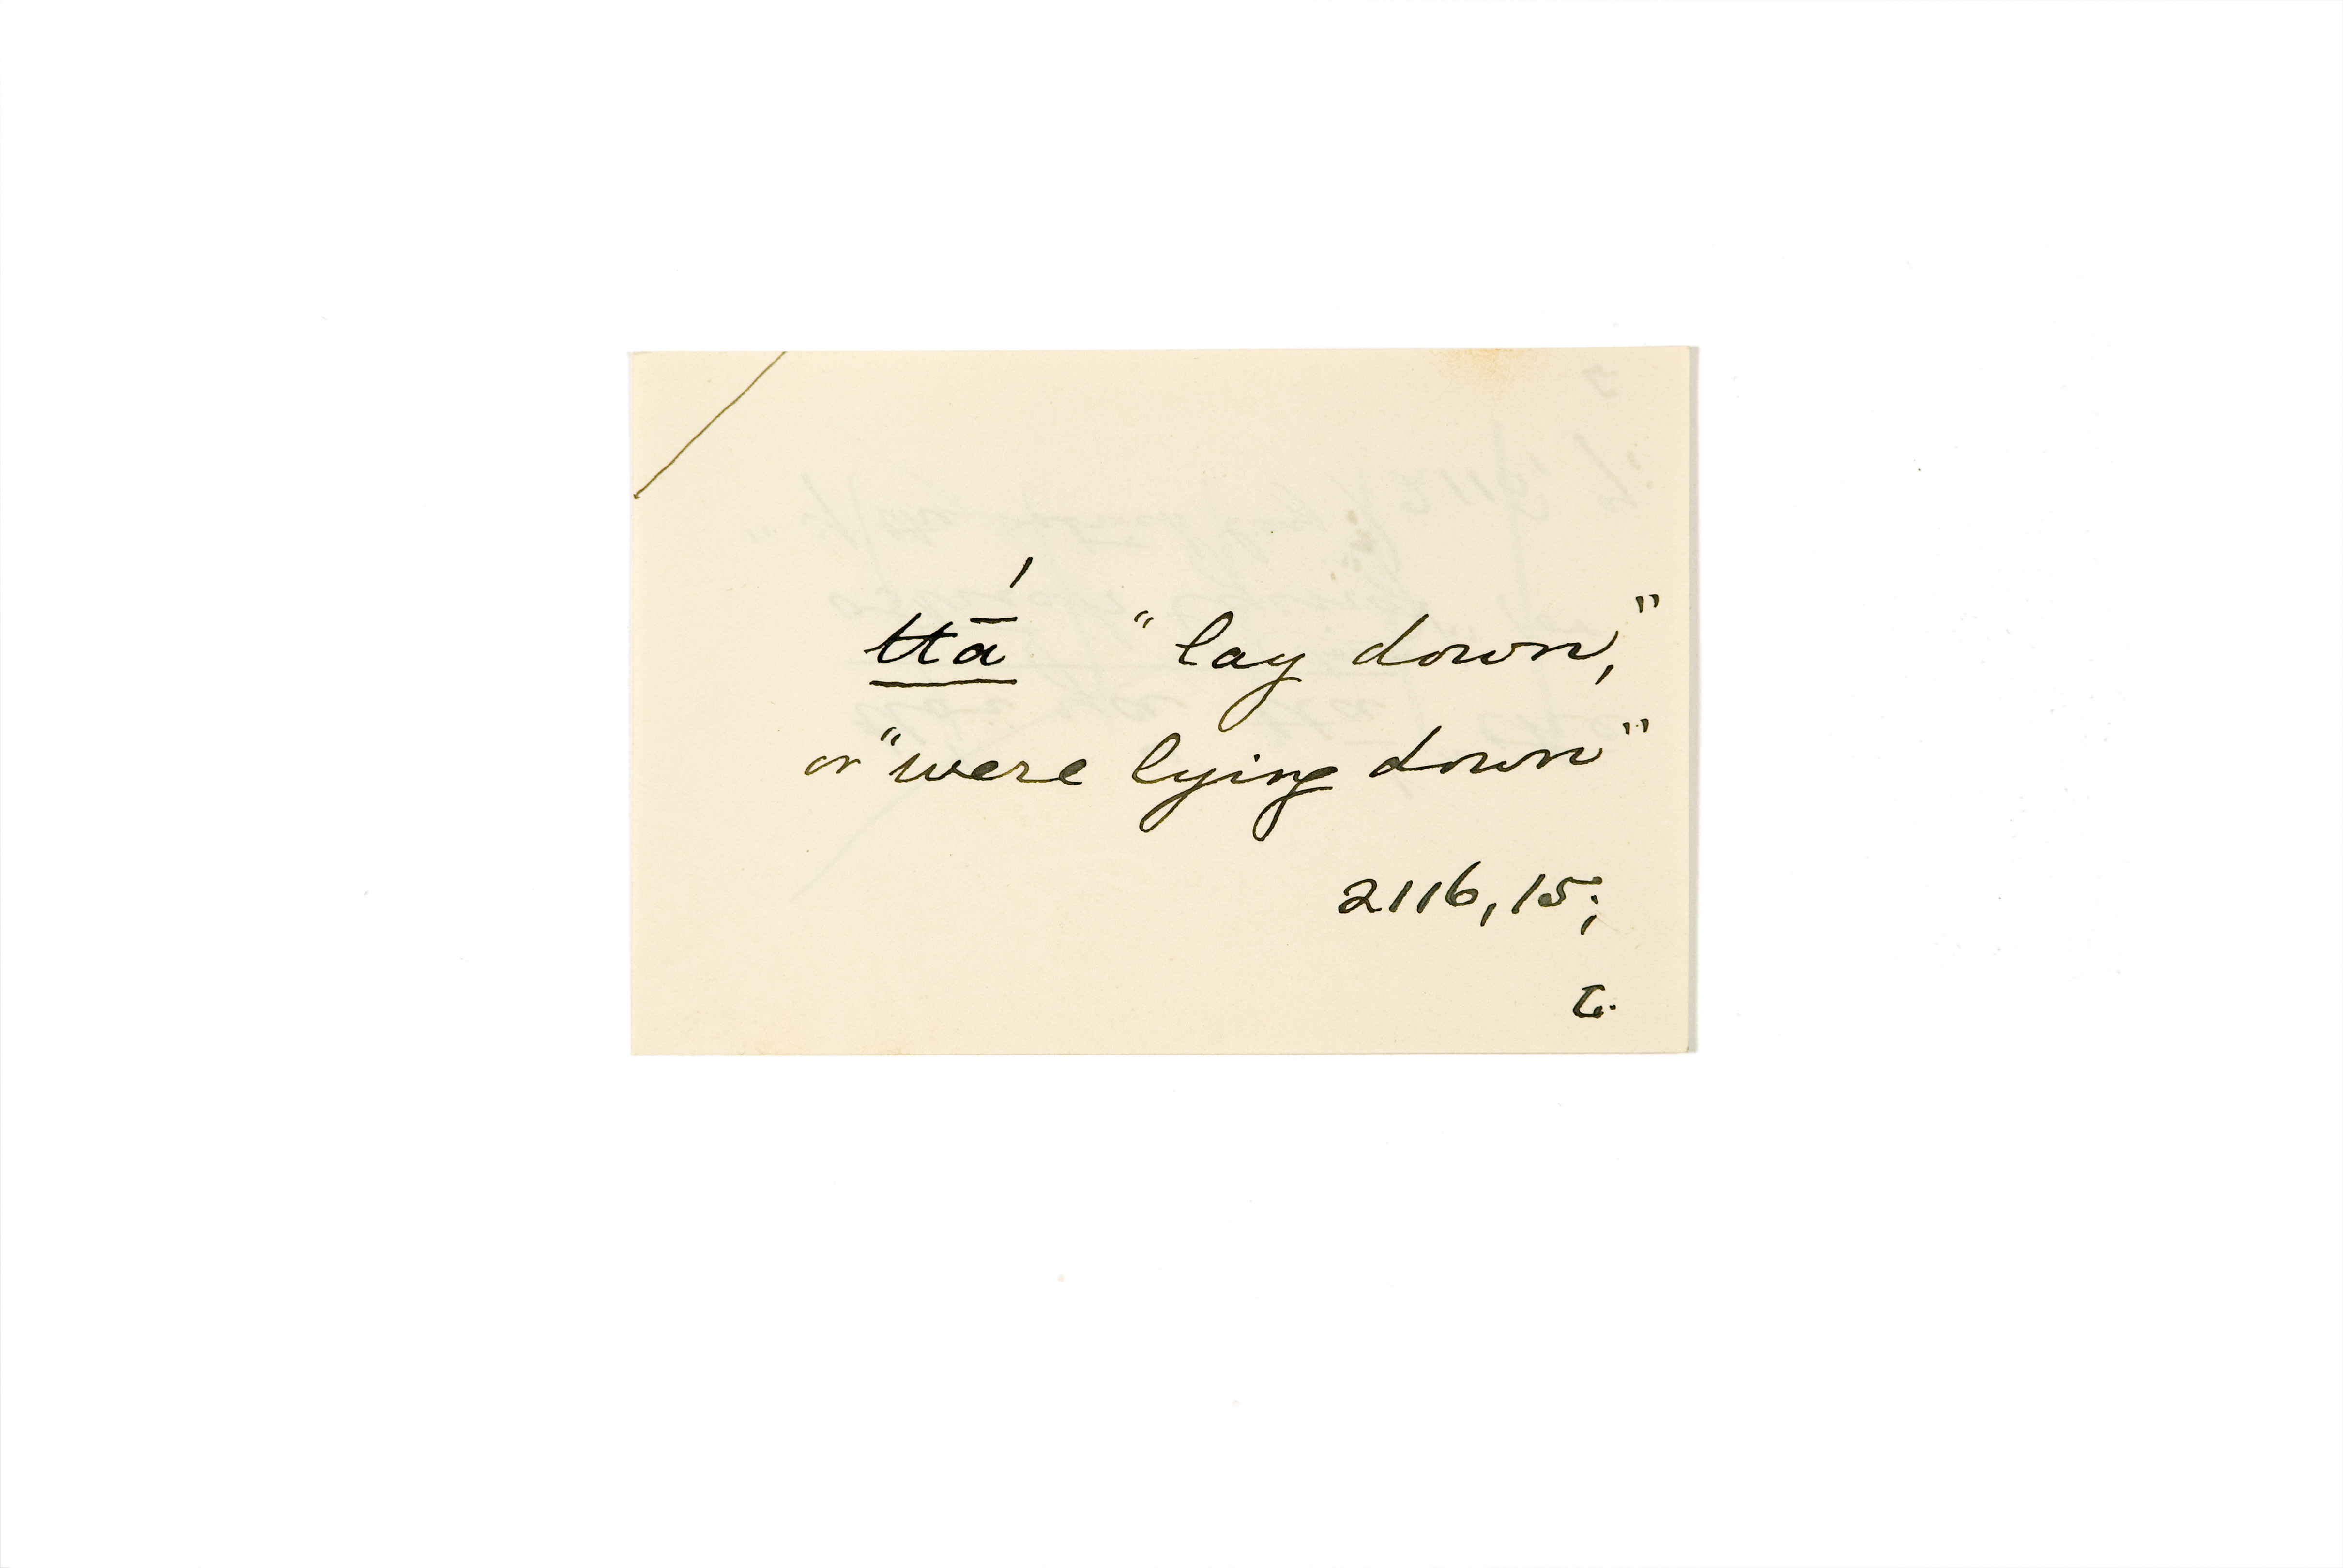 ttā́ "lay down,"
or "were lying down"
2116, 15;